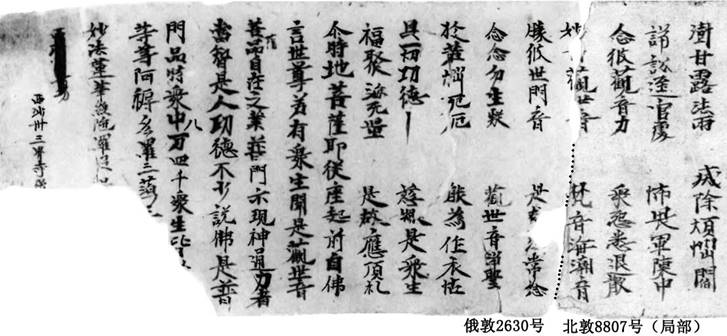 澍甘露法雨 滅除煩惱閻
諍訟逕官處 怖畏軍陳中
念彼觀音力 衆怨悉退散
妙 觀世音 梵音海潮音
勝彼世間音 是 常念
念念勿生疑 觀世音淨聖
於苦惱死厄 能為作衣怙
具一切功德 慈眼是衆生
福聚海无量 是故應頂礼
尒時地菩薩即從座起前白佛
言世尊若有衆生聞是觀世音
菩薩品自在之業普門示現神通力者
當智是人功德不少說佛是普
門品時衆中八万四千衆生皆
等等阿耨多羅三藐
妙法蓮華經陁羅尼
三界寺
俄敦2630号
北敦8807号（局部）